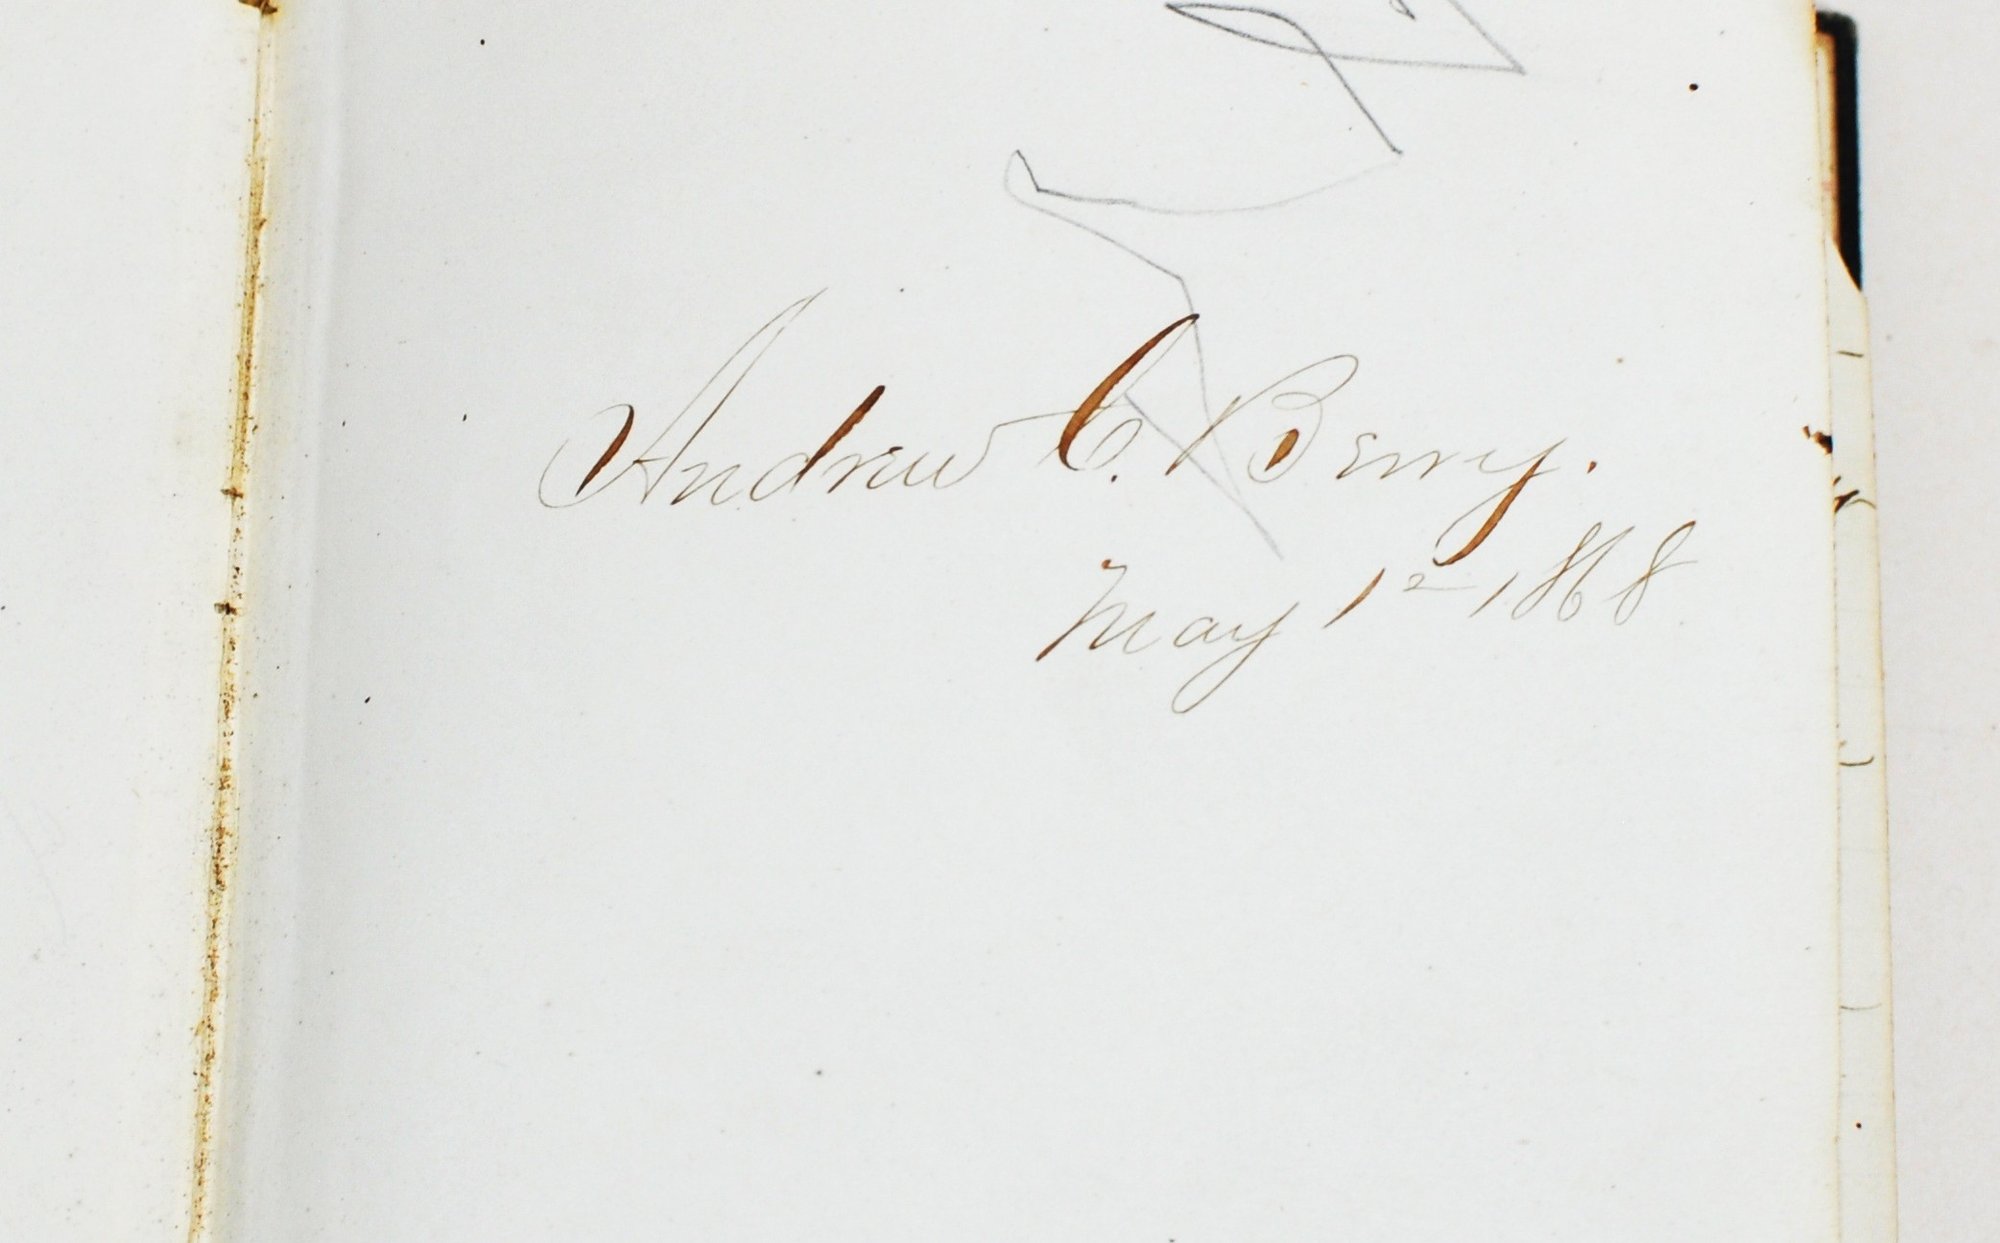 Andrew C. Berry.
May 1st 1868